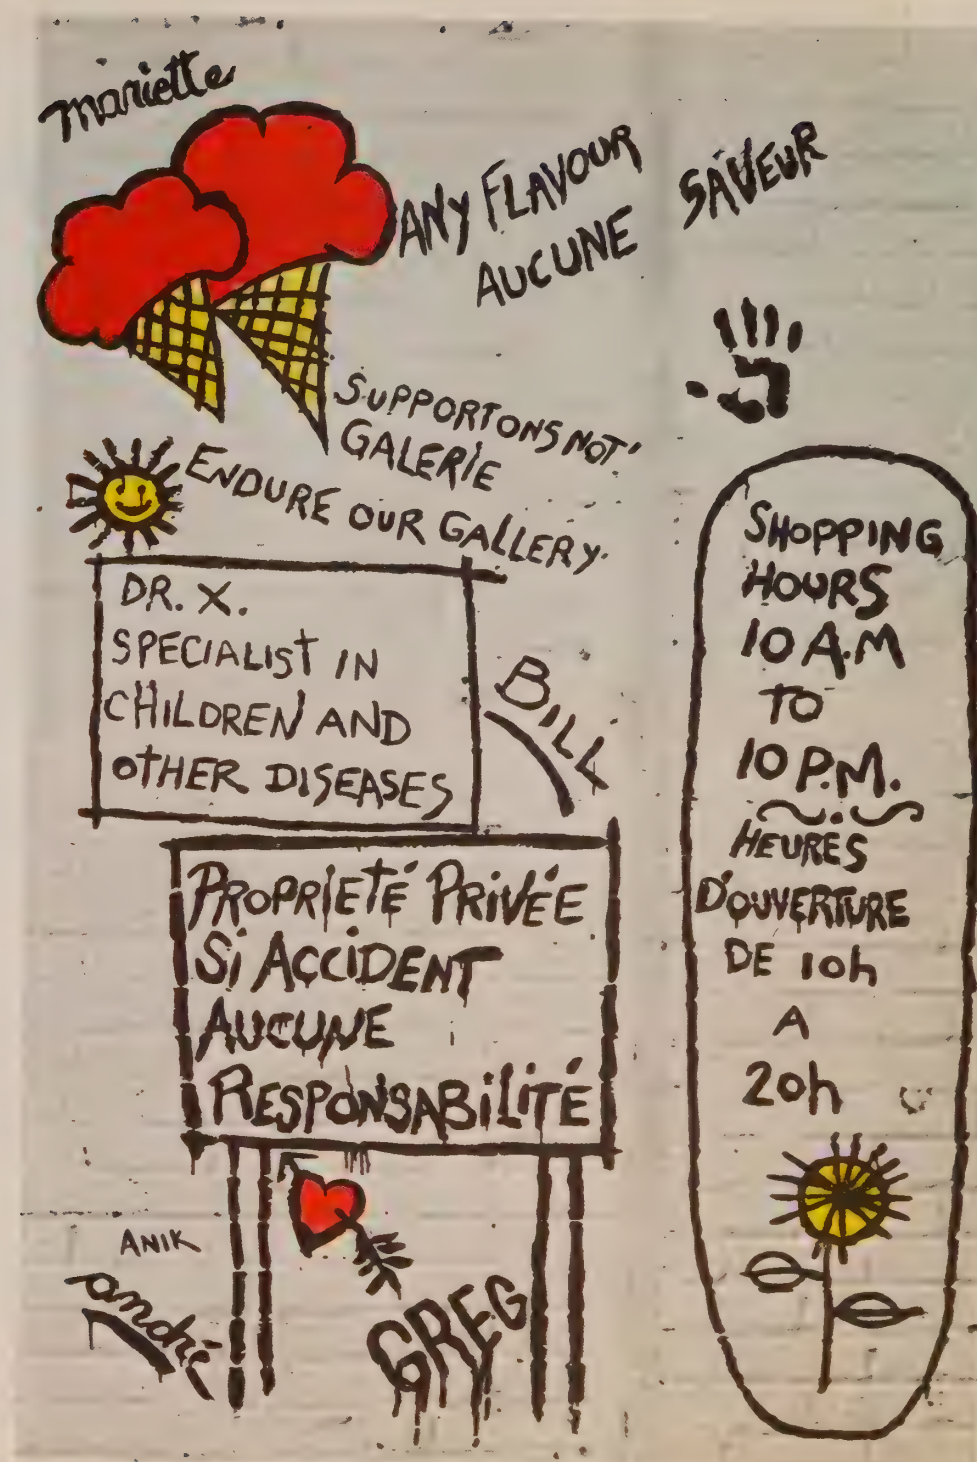 mariette
ANY FLAVOUR
AUCUNE SAVEUR
SUPPORTONS NOT'
GALERIE
ENDURE OUR GALLERY.
DR. X.
SPECIALIST IN
CHILDREN AND
OTHER DISEASES
BILL
PROPRIETÉ PRIVÉE
Si ACCIDENT
AUCUNE
RESPONSABILITÉ
ANIK
andré
GREG
SHOPPING
HOURS
10 A.M
TO
10 P.M.
HEURES
D'OUVERTURE
DE 10h
A
20h